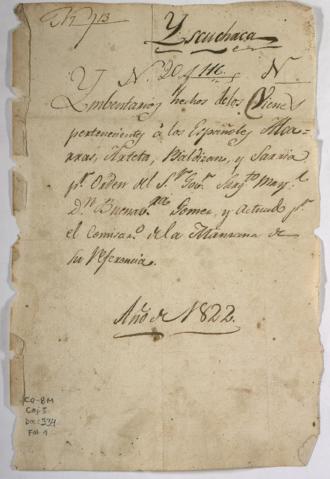 Nº 713
Yscuchaca
Y Nº. 20, 116 N
Ymbentarios hechos delos Vienes
pertenecientes á los Españoles
Arteta, Baldizan, y Sarria
pr. Orden del Sr. Govr. Sargto. Mayr.
Dn. Buenabra. Gomes, y Actuado pr.
el Comisaro. de la Manzana de
su Referencia.
Año de 1822.
CO-BM
Caj-5
Doc: 534
Fol-1